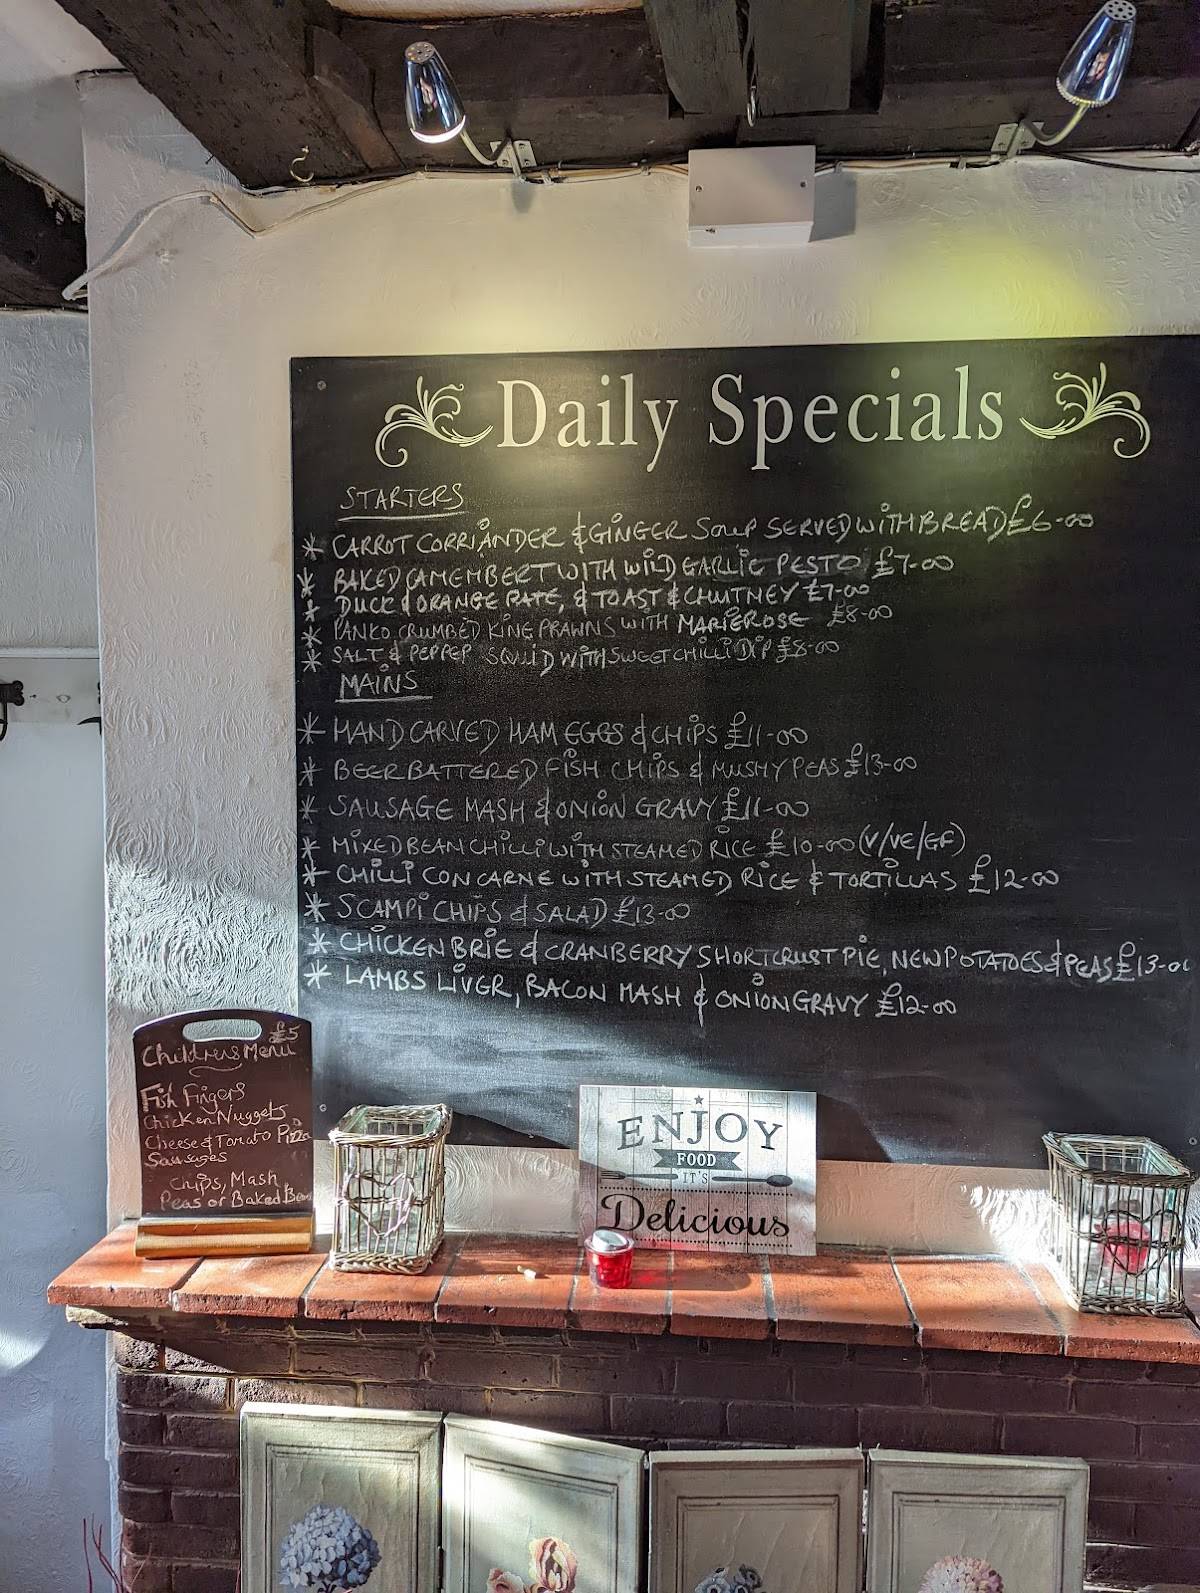 Daily Specials
STARTERS
* CARROT CORRIANDER & GINGER SOUP SERVED WITH BREAD £6-00
* BAKED CAMEMBERT WITH WILD GARLIC PESTO £7-00
* DUCK & ORANGE PATE, & TOAST & CHUTNEY £7-00
* PANKO CRUMBED KING PRAWNS WITH MARIEROSE £8-00
* SALT & PEPPER SQUID WITH SWEET CHILLI DIP £8-00
MAINS
* HAND CARVED HAM EGGS & CHIPS £11-00
* BEER BATTERED FISH CHIPS & MUSHY PEAS £13-00
* SAUSAGE MASH & ONION GRAVY £11-00
* MIXED BEAN CHILLI WITH STEAMED RICE £10-00 (V/VE/GF)
* CHILLI CON CARNE WITH STEAMED RICE & TORTILLAS £12-00
* SCAMPI CHIPS & SALAD £13-00
* CHICKEN BRIE & CRANBERRY SHORTCRUST PIE, NEW POTATOES & PEAS £13-00
* LAMBS LIVER, BACON MASH & ONION GRAVY £12-00
£5
Childrens Menu
Fish Fingers
Chicken Nuggets
Cheese & Tomato Pizza
Sausages
Chips, Mash,
Peas or Baked Beans
ENJOY
FOOD
IT'S
Delicious